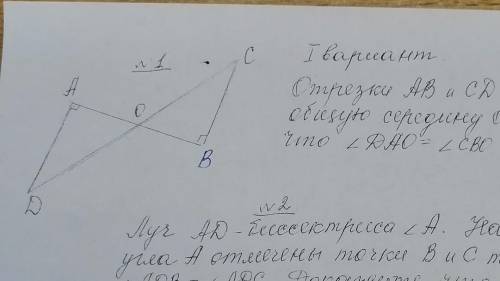 №1
I вариант.
Отрезки AB и CD
общую середину
что ∠DAO = ∠CBO
A
O
C
B
D
№2
Луч AD - биссектриса ∠A. На
угла A отмечены точки B и C
= ∠ADC. Докажите, что